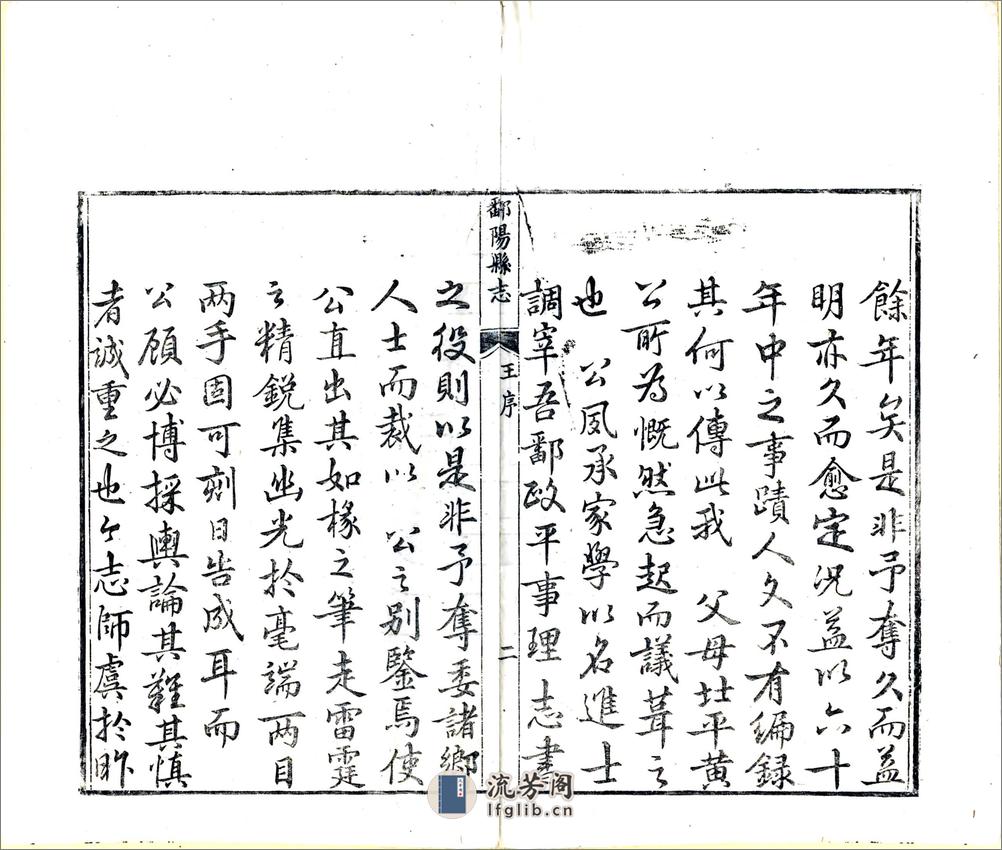 餘年矣是非予奪久而益
明亦久而愈定況益以六十
年中之事蹟人文不有編録
其何以傳此我　父母壯平黄
公所為慨然急起而議葺之
也　公夙承家學以名進士
調宰吾鄱政平事理志書
鄱陽縣志
王序
二
之役則以是非予奪委諸鄉
人士而裁以　公之别鑒焉使
公直出其如椽之筆走雷霆
之精鋭集幽光於毫端两目
两手固可剋日告成耳而
公顧必博採輿論其難其慎
者誠重之也今志師虞於昨
流芳阁
lfglib.cn